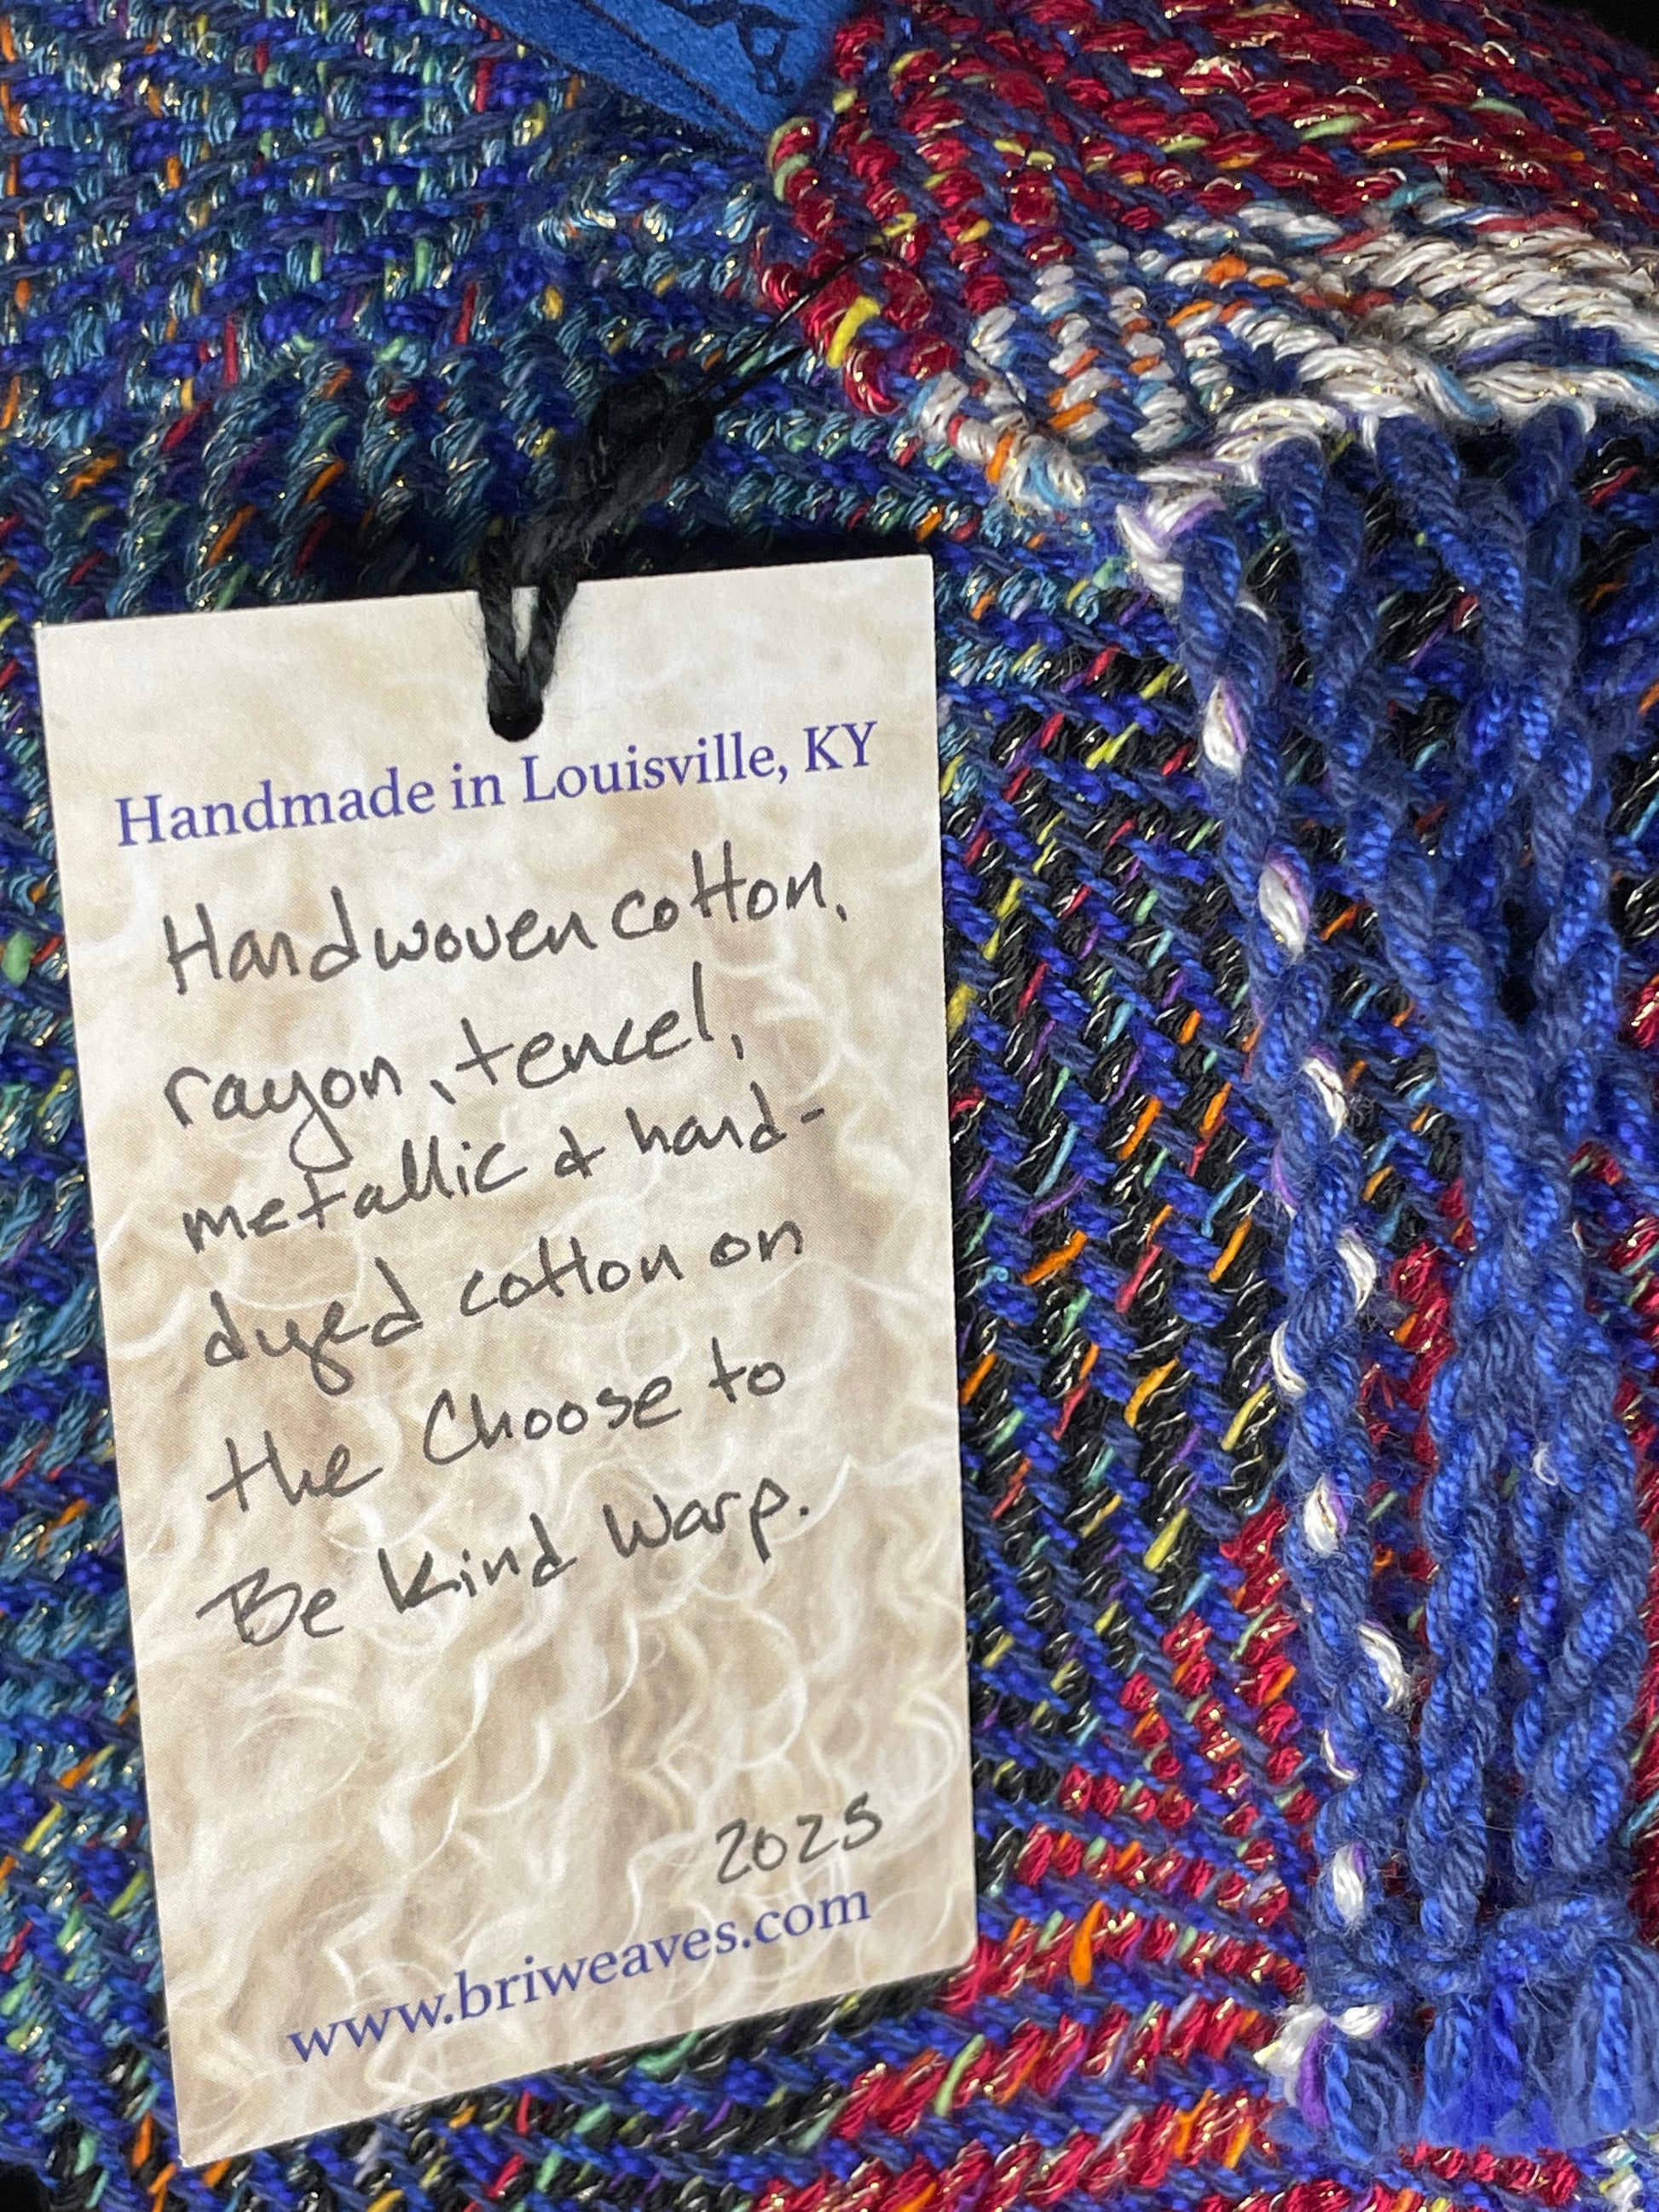 Handmade in Louisville, KY
Handwoven cotton,
rayon, tencel,
metallic & hand-
dyed cotton on
the Choose to
Be Kind Warp.
2025
www.briweaves.com